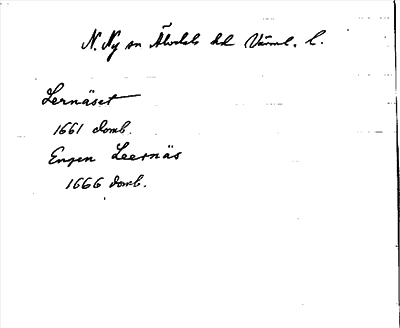 N. Ny sn Älvdals hd Värml. l.
Lernäset
1661 domb.
Engen Leernäs
1666 domb.